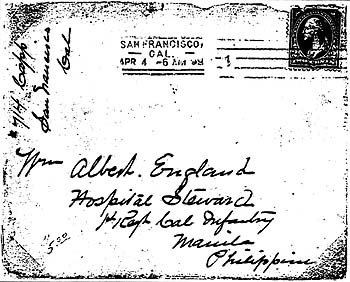 San Francisco
Cal
SAN FRANCISCO,
CAL.
APR 4 -6 AM '99
1
Wm Albert. England
Hospital Steward
1st Regt Cal Infantry
Manila
Philippine
5.30